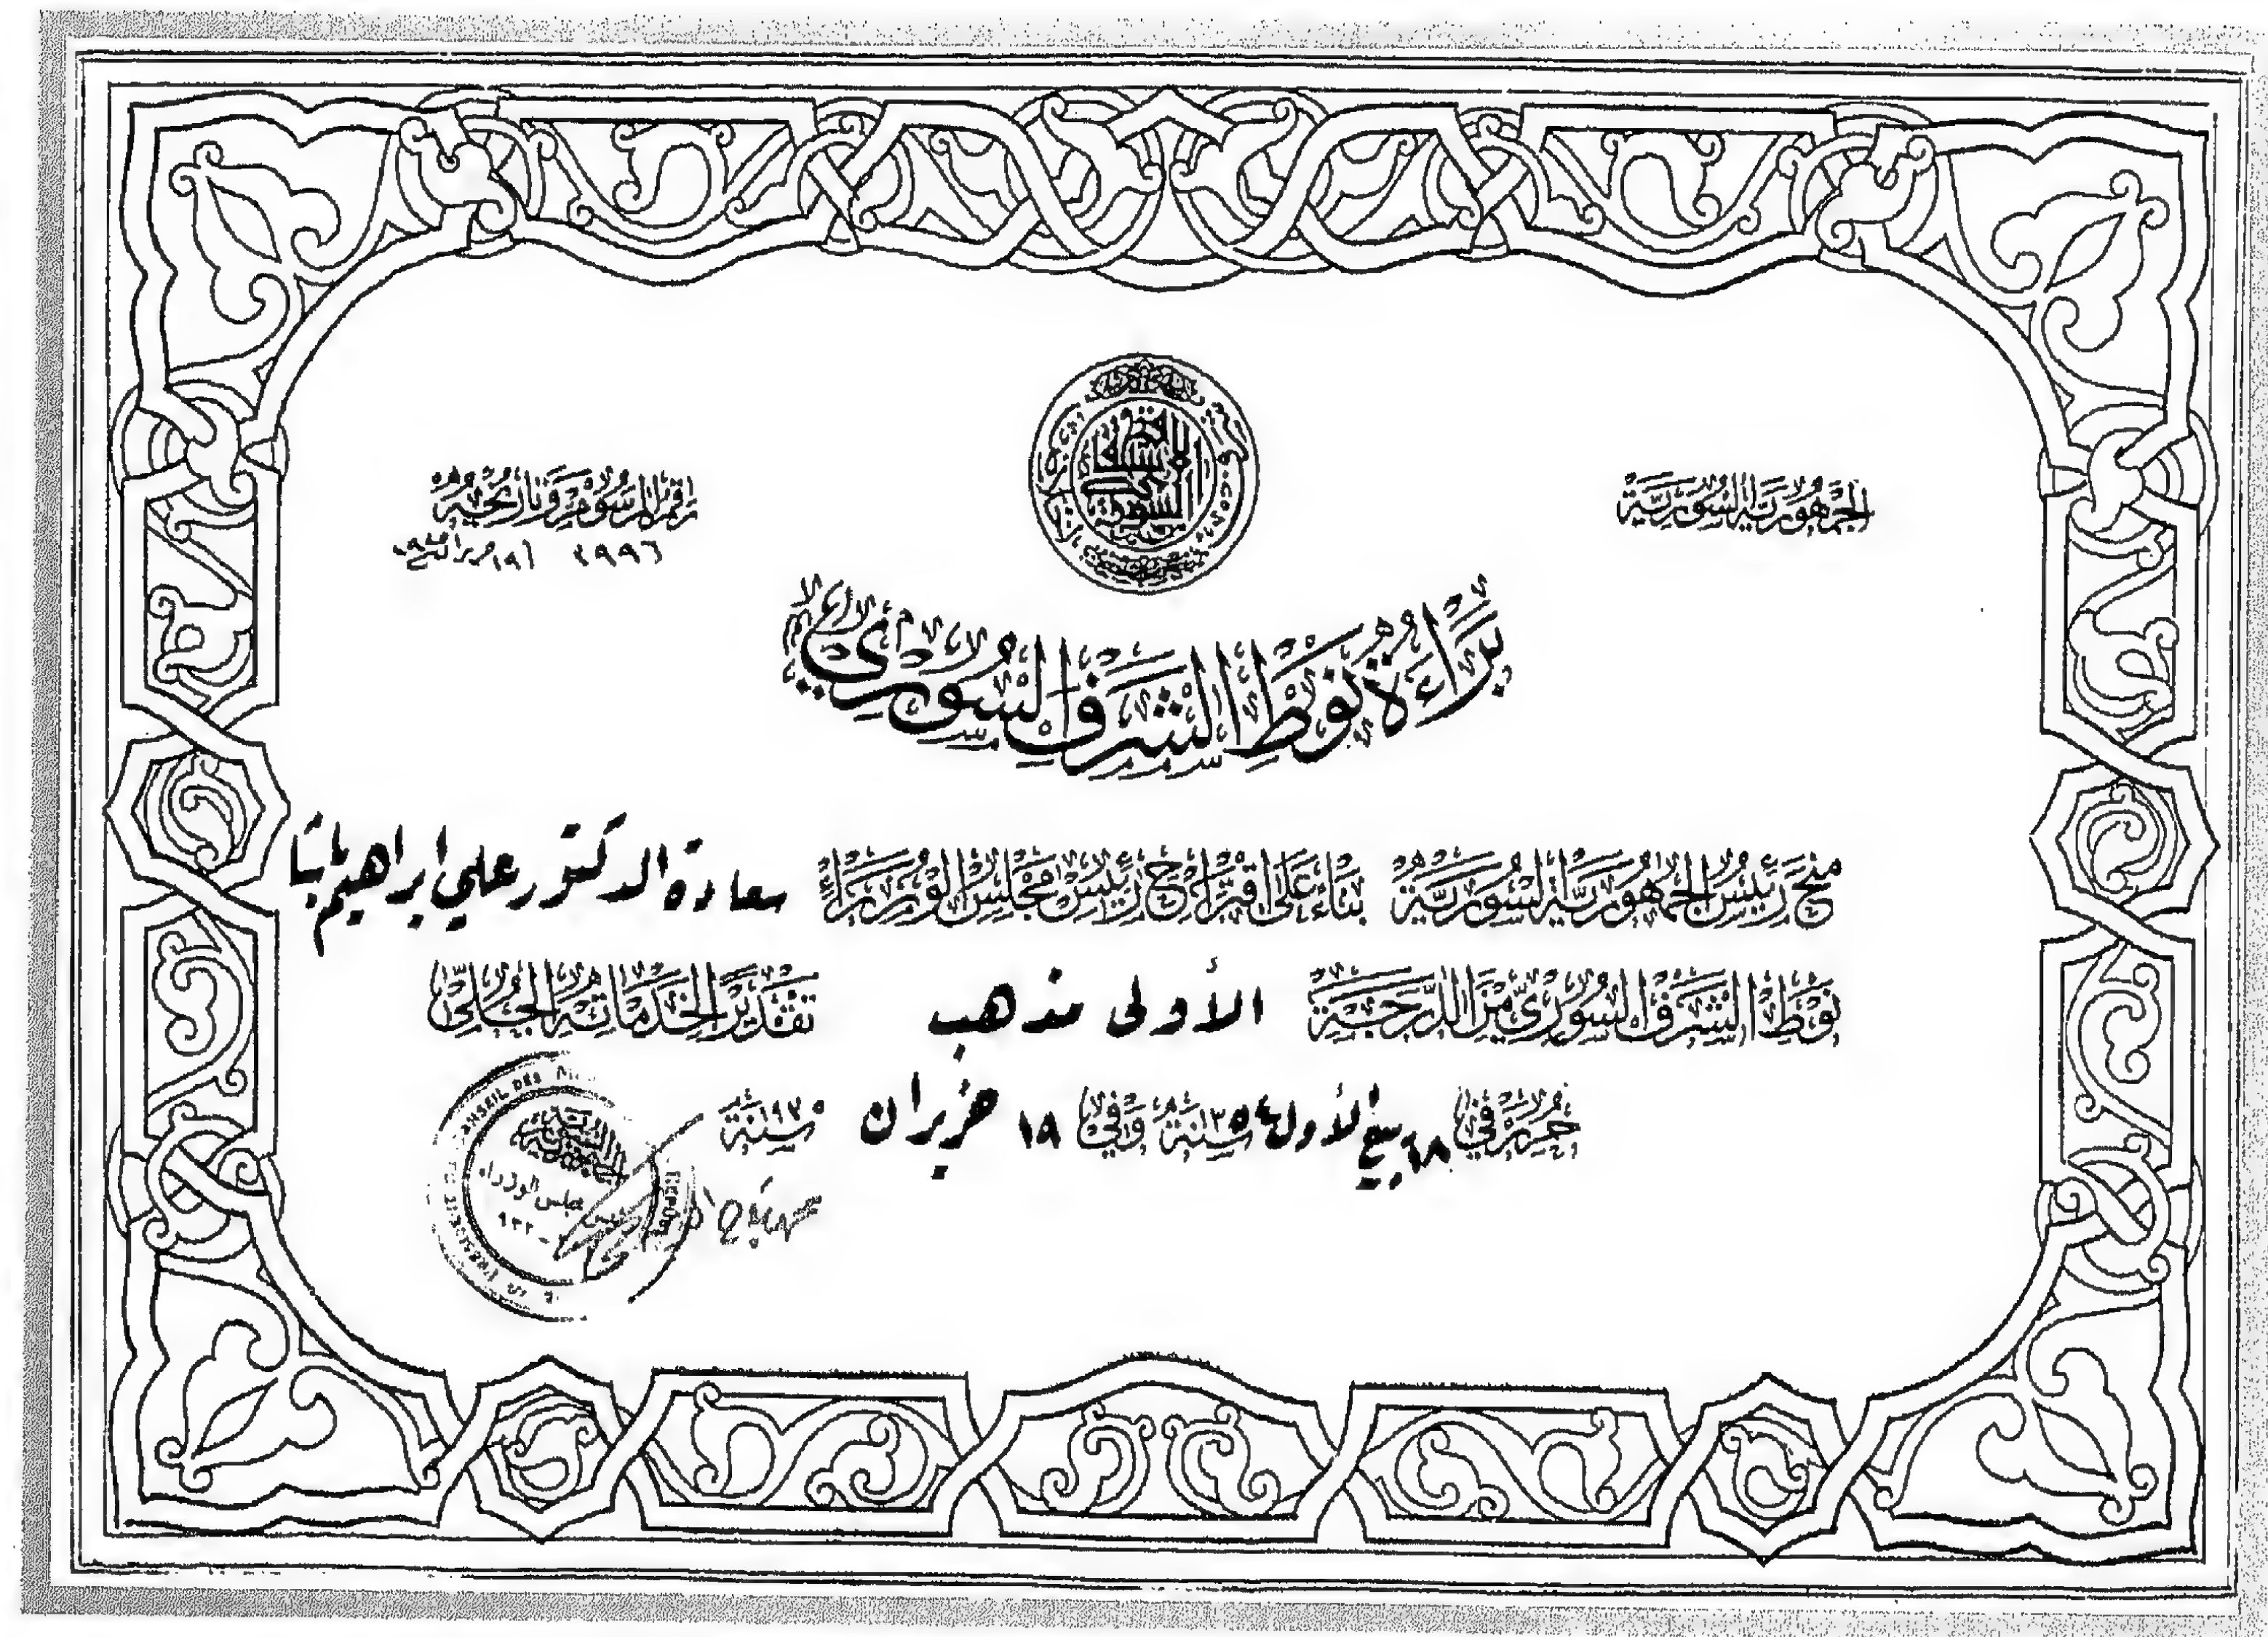 الجمهورية السورية
رقم المرسوم وتاريخه
٢٩٩٦
براءة نوط الشرف السوري
منح رئيس الجمهورية السورية بناء على اقتراح رئيس مجلس الوزراء سعادة الدكتور علي ابراهيم باشا
نوط الشرف السوري من الدرجة الأولى مذهب تقديرا لخدماته الجلى
حرر في ١٨ ربيع الأول سنة ١٣٥٤ وفي ١٨ حزيران سنة ١٩٣٥
مجلس الوزراء